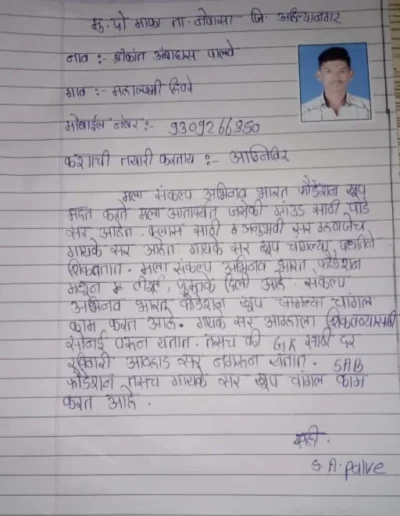 मु. पो माका ता. नेवासा जि. अहिल्यानगर
नाव :- श्रीकांत अंबादास पालवे
गाव :- महालक्ष्मी हिवरे
मोबाईल नंबर :- 9309266850
कशाची तयारी करताय :- अग्निविर
मला संकल्प अभिनव भारत फौंडेशन खुप
मदत करते मला आतापर्यंत जसेकी ग्राउंड साठी पांडे
सर आहेत. क्लास साठी अनुभवी सर म्हणजेच
गायके सर आहेत गायके सर खुप चांगल्या पद्धतीने
शिकवतात. मला संकल्प अभिनव भारत फौंडेशन
मधून पुस्तके दिली आहे. संकल्प
अभिनव भारत फौंडेशन खुप चांगल्या चांगल
काम करत आहे. गायके सर आम्हाला शिकवण्यासाठी
सोनई वरून येतात. तसेच की GK साठी दर
रविवारी आव्हाड सर नगरून येतात. SAB
फौंडेशन तसेच गायके सर खुप चांगल काम
करत आहे.
सही.
S.A. Palve